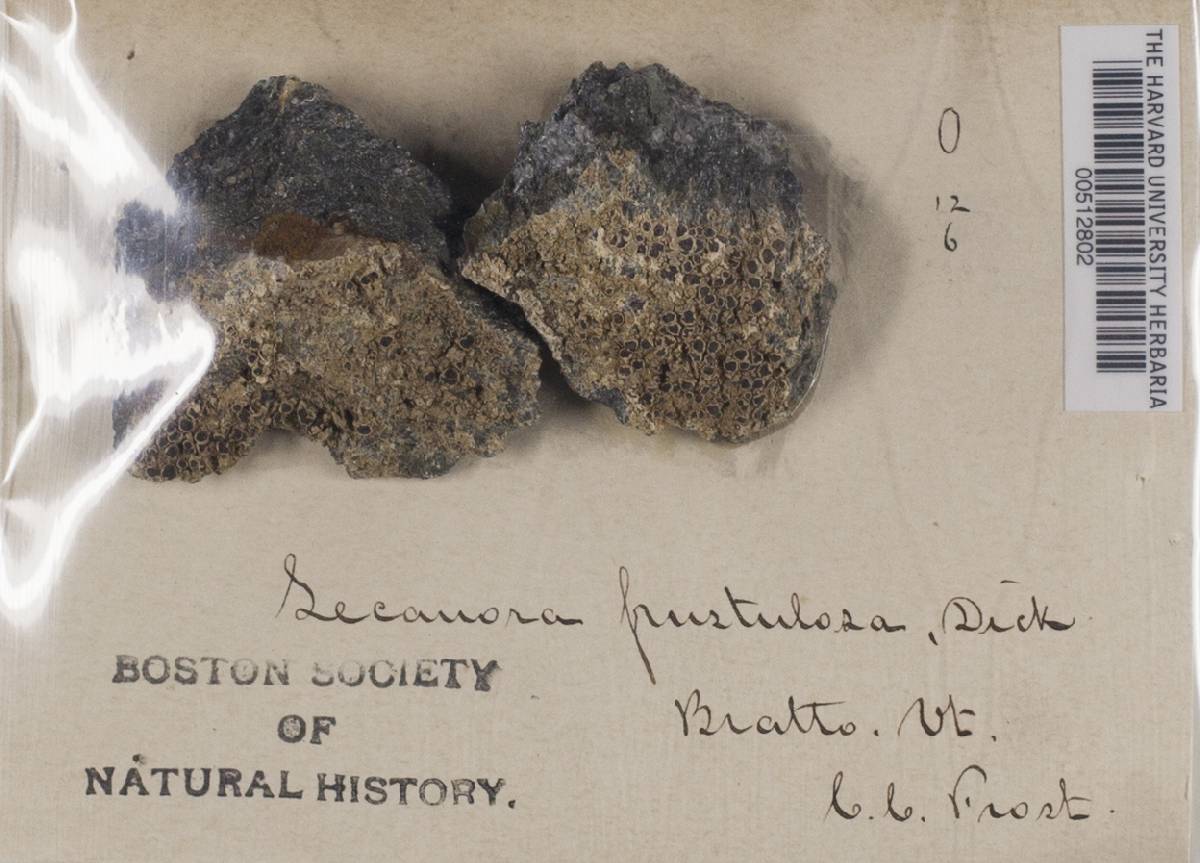 O
12
6
THE HARVARD UNIVERSITY HERBARIA
00512802
Lecanora frustulosa, Dick
BOSTON SOCIETY
OF
NATURAL HISTORY.
Bratto. Vt.
C. C. Frost.